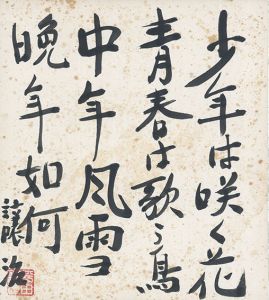 少年は咲く花
青春は歌う鳥
中年風雪
晩年如何
譲治